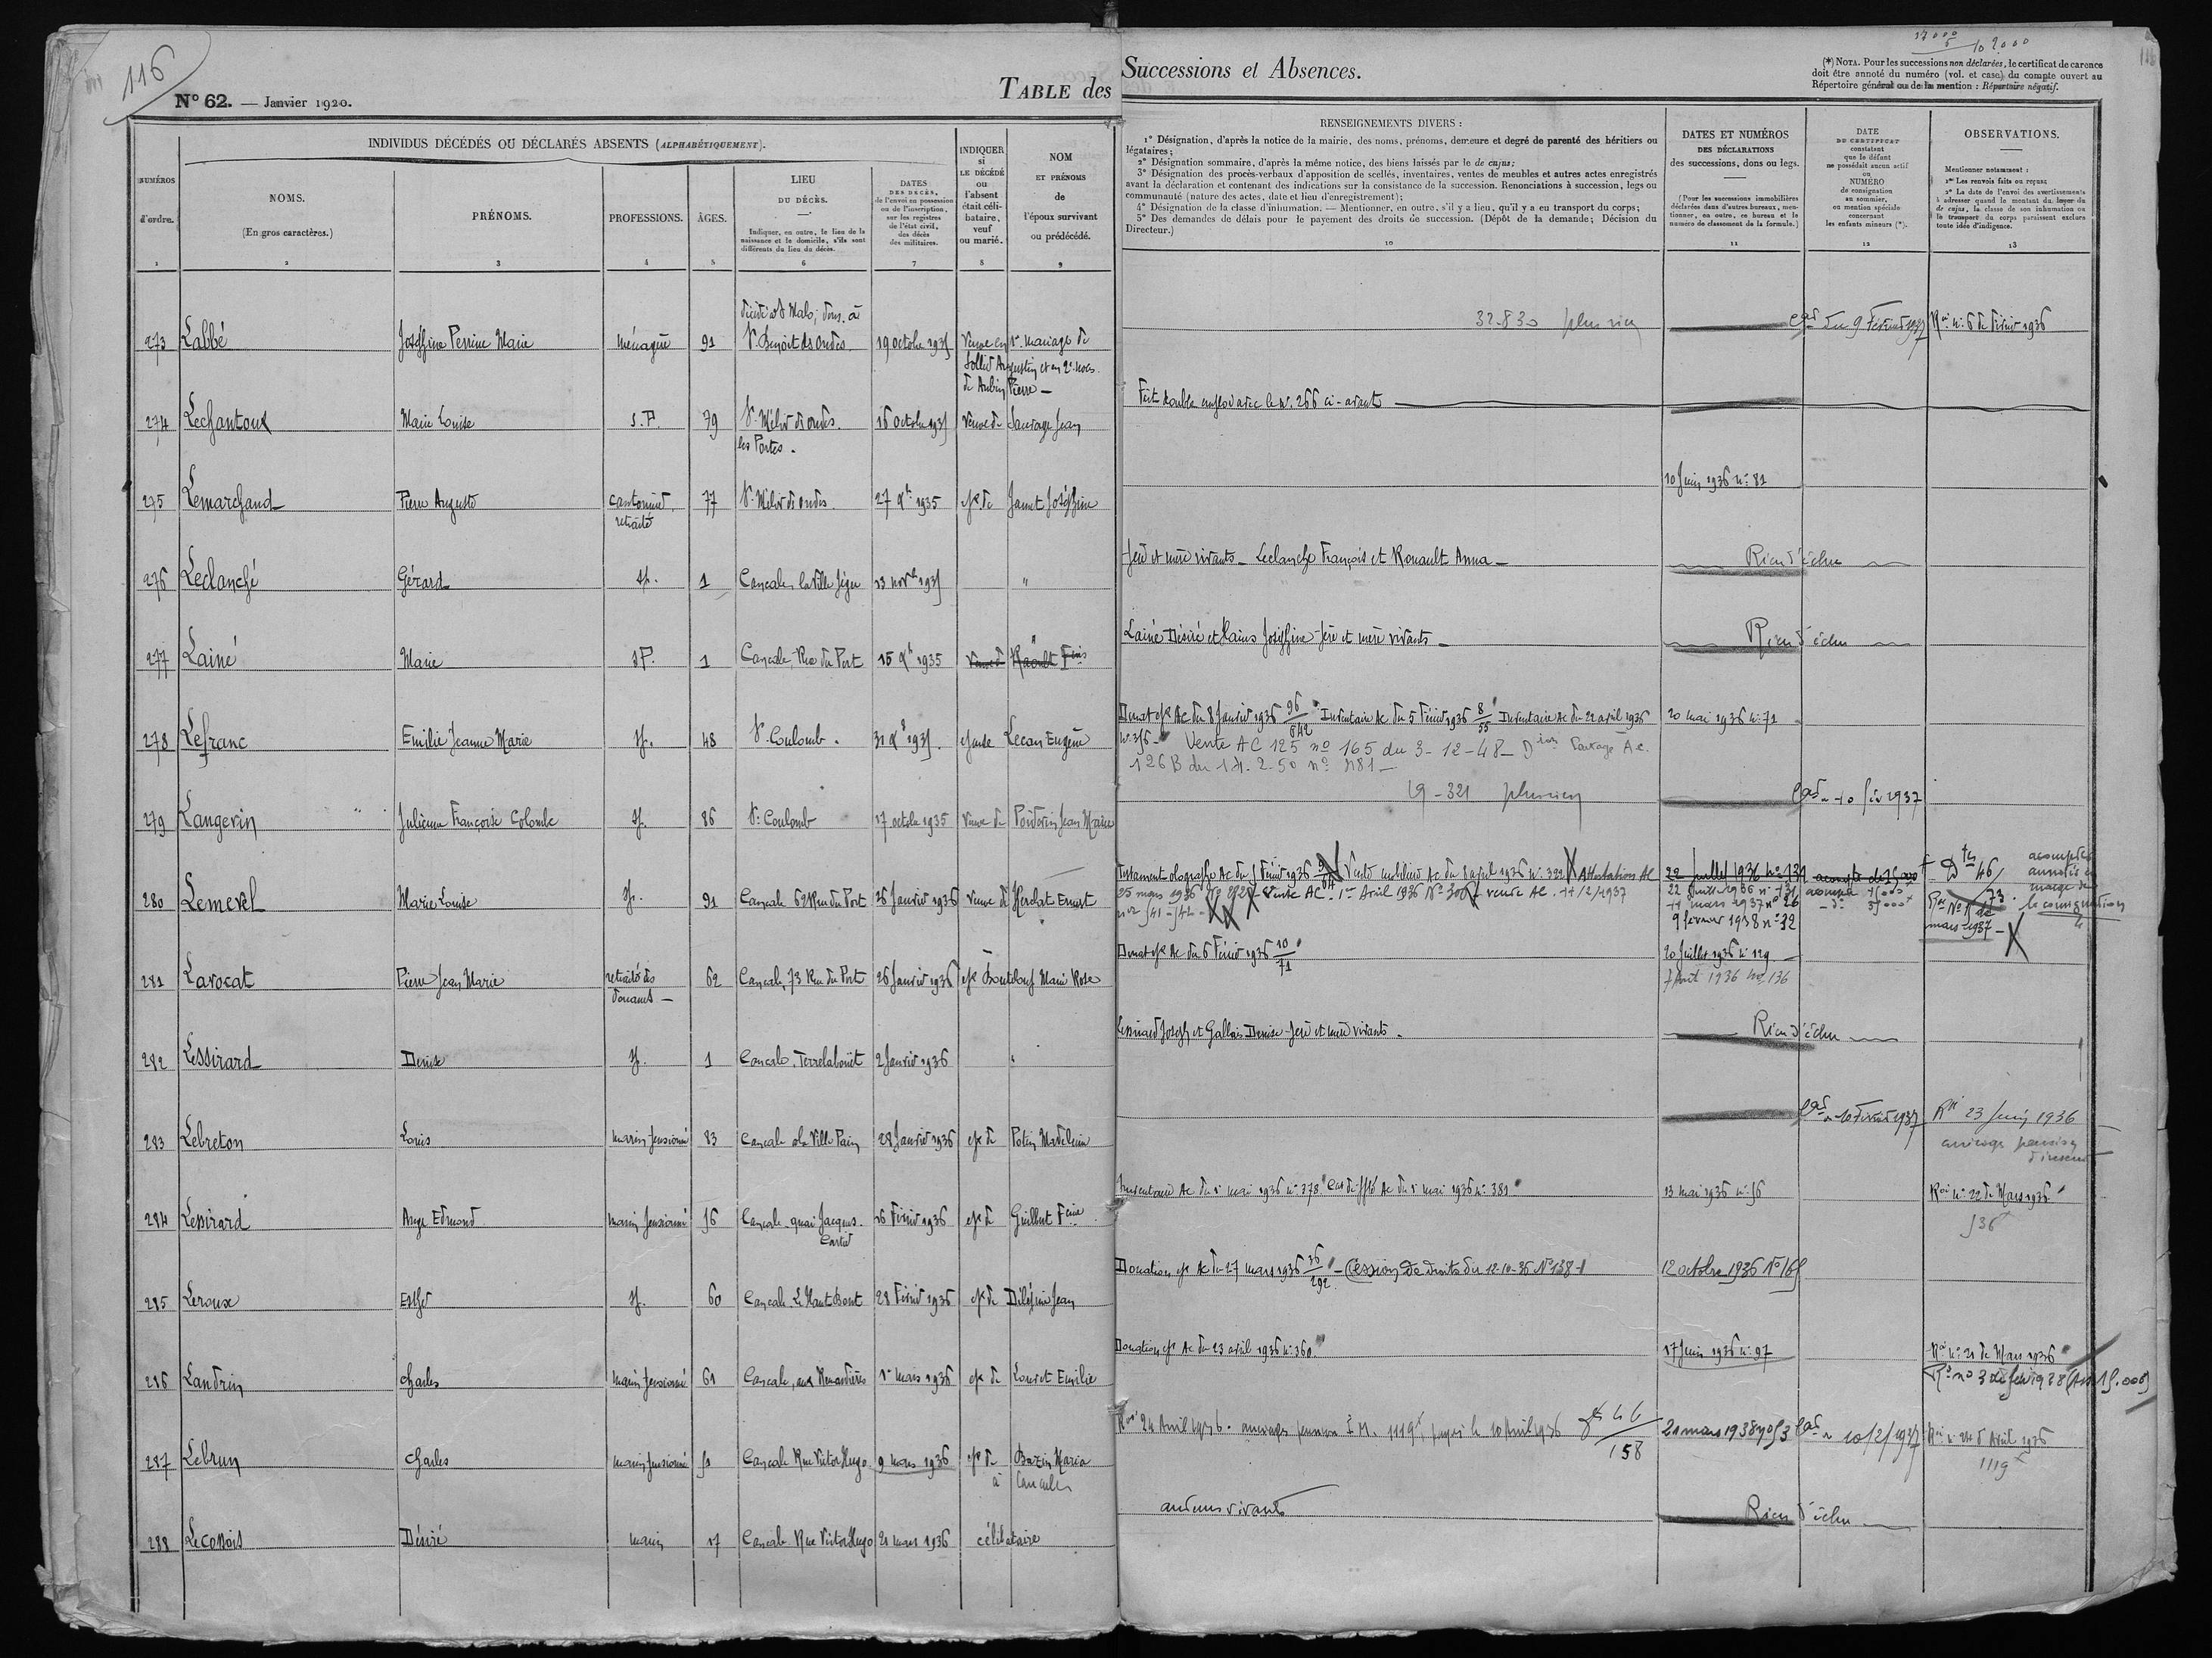 116
N° 62. — Janvier 1920.
TABLE des Successions et Absences.
17000
6
102000
(*) NOTA. Pour les successions non déclarées, le certificat de carence
doit être annoté du numéro (vol. et case) du compte ouvert au
Répertoire général ou de la mention : Répertoire négatif.
NUMÉROS
d'ordre.
1
INDIVIDUS DÉCÉDÉS OU DÉCLARÉS ABSENTS (ALPHABÉTIQUEMENT).
NOMS.
(En gros caractères.)
2
PRÉNOMS.
3
PROFESSIONS.
4
ÂGES.
5
LIEU
DU DÉCÈS.
Indiquer, en outre, le lieu de la
naissance et le domicile, s'ils sont
différents du lieu du décès.
6
DATES
DES DÉCÈS,
de l'envoi en possession
ou de l'inscription,
sur les registres
de l'état civil,
des décès
des militaires.
7
INDIQUER
si
LE DÉCÉDÉ
ou
l'absent
était céli-
bataire,
veuf
ou marié.
8
NOM
ET PRÉNOMS
de
l'époux survivant
ou prédécédé.
9
RENSEIGNEMENTS DIVERS :
1° Désignation, d'après la notice de la mairie, des noms, prénoms, demeure et degré de parenté des héritiers ou
légataires;
2° Désignation sommaire, d'après la même notice, des biens laissés par le de cujus;
3° Désignation des procès-verbaux d'apposition de scellés, inventaires, ventes de meubles et autres actes enregistrés
avant la déclaration et contenant des indications sur la consistance de la succession. Renonciations à succession, legs ou
communauté (nature des actes, date et lieu d'enregistrement);
4° Désignation de la classe d'inhumation. — Mentionner, en outre, s'il y a lieu, qu'il y a eu transport du corps;
5° Des demandes de délais pour le payement des droits de succession. (Dépôt de la demande; Décision du
Directeur.)
10
DATES ET NUMÉROS
DES DÉCLARATIONS
des successions, dons ou legs.
(Pour les successions immobilières
déclarées dans d'autres bureaux, men-
tionner, en outre, ce bureau et le
numéro de classement de la formule.)
11
DATE
DU CERTIFICAT
constatant
que le défunt
ne possédait aucun actif
ou
NUMÉRO
de consignation
au sommier,
ou mention spéciale
concernant
les enfants mineurs (*).
12
OBSERVATIONS.
Mentionner notamment :
1° Les renvois faits ou reçus;
2° La date de l'envoi des avertissements
à adresser quand le montant du loyer du
de cujus, la classe de son inhumation ou
le transport du corps paraissent exclure
toute idée d'indigence.
13
273 Labbé Joséphine Perrine Marie ménagère 91 décédée à St Malo; dom. à
St Benoit des ondes 19 octobre 1935 Veuve en 1er mariage de
Augustin et en 2e noces
de Aubin Pierre — 32830 plus rien du 9 Février 1937 Roi n° 6 de Février 1936
274 Lechantoux Marie Louise s.P. 79 St Méloir des ondes 16 octobre 1935 Veuve de Sauvage Jean
les Portes. Fait double emploi avec le n°. 266 ci-avant
275 Lemarchand Pierre Auguste cantonnier
retraité 77 St Méloir des ondes 27 Xbre 1935 ép. de Jamet Joséphine 10 Juin 1936 n° 81
276 Leclanché Gérard sp. 1 Cancale, la Ville Jégu 23 novbre 1935 " père et mère vivants — Leclanche François et Renault Anna — Rien d'échu
277 Lainé Marie sP. 1 Cancale Rue du Port 15 Xbre 1935 Veuve de Raoult Fois Lainé Désiré et Hains Joséphine père et mère vivants — Rien d'échu
278 Lefranc Emilie Jeanne Marie sp. 48 St. Coulomb. 31 Xbre 1935. épouse Lecan Eugène Donat. ép. Ac du 8 Janvier 1936 96 Inventaire Ac du 5 Février 1936 8/55 Inventaire Ac du 22 avril 1936
Vente AC 125 n° 165 du 3-12-48 — Partage Ac.
126 B du 14.2.50 n° 20 mai 1936 n° 71
279 Langevin Julienne Françoise Colombe sp. 86 St. Coulomb 17 octobre 1935 Veuve de Poidevin Jean Marie 19-321 plus rien 10 fév 1937
280 Lemevel Marie Louise sp. 91 Cancale 62 Rue du Port 26 Janvier 1936 Veuve de Herclat Ernest Testament olographe Ac du 5 Février 1936 Vente mobilière Ac du 8 avril 1936 n° 322 Attestation AC
25 mars 1936 Vente AC. 1er Avril 1936 N° vente AC. 11/2/1937
n° 541-542 22 juillet 1936 n° 131 acompte de 25000
22 juillet 1936 n° 131
11 mars 1937 n° 26
9 février 1938 n° 32 acomptes
annotés en
marge de
la consignation
mars 1937 —
281 Lavocat Pierre Jean Marie retraité des
Douanes — 62 Cancale, 73 Rue du Port 26 Janvier 1936 ép. Boutelouf Marie Rose Donat. ép. Ac du 6 Février 1936 10/71 20 Juillet 1936 n° 129
7 Août 1936 n° 136
282 Lessirard Denise sp. 1 Cancale. Terrelabouët 2 Janvier 1936 Lessirard Joseph et Gallais Denise père et mère vivants. Rien d'échu
283 Lebreton Louis marin pensionné 83 Cancale à la Ville Pain 28 Janvier 1936 ép. de Potin Madeleine 10 Février 1937 Roi 23 Juin 1936
arrérages pension
284 Lessirard Ange Edmond marin pensionné 56 Cancale quai Jacques
Cartier 26 Février 1936 ép. de Guilbert Inventaire Ac du 1er mai 1936 n° 378 Ac du 1er mai 1936 n° 381 13 mai 1936 n° 56 Roi n° 22 de Mars 1936
536
285 Leroux Esther sp. 60 Cancale Le Haut Bout 28 Février 1936 ép. de Délépine Jean Donation ép. Ac du 27 mars 1936 36/292 — Cession de droits du 12-10-36 N° 138 12 octobre 1936 N° 165
286 Landrin Charles marin pensionné 61 Cancale, aux Renardières 1er mars 1936 ép. de Louvet Emilie Donation ép. Ac du 23 avril 1936 n° 360. 17 Juin 1936 n° 97 Roi n° 21 de Mars 1936
Roi n° 3 de fév 1938
287 Lebrun Charles marin pensionné 51 Cancale Rue Victor Hugo 9 mars 1936 ép. de Bazin Maria
à Cancale Roi 24 Avril 1936. arrérages pension I. M. 1119f payés le 10 Avril 1936 46/158 21 mars 1938 n° 53 10/2/1937 Roi n° 24 d'Avril 1936
1119f
288 Leconois Désiré marin 17 Cancale Rue Victor Hugo 21 mars 1936 célibataire vivants Rien d'échu